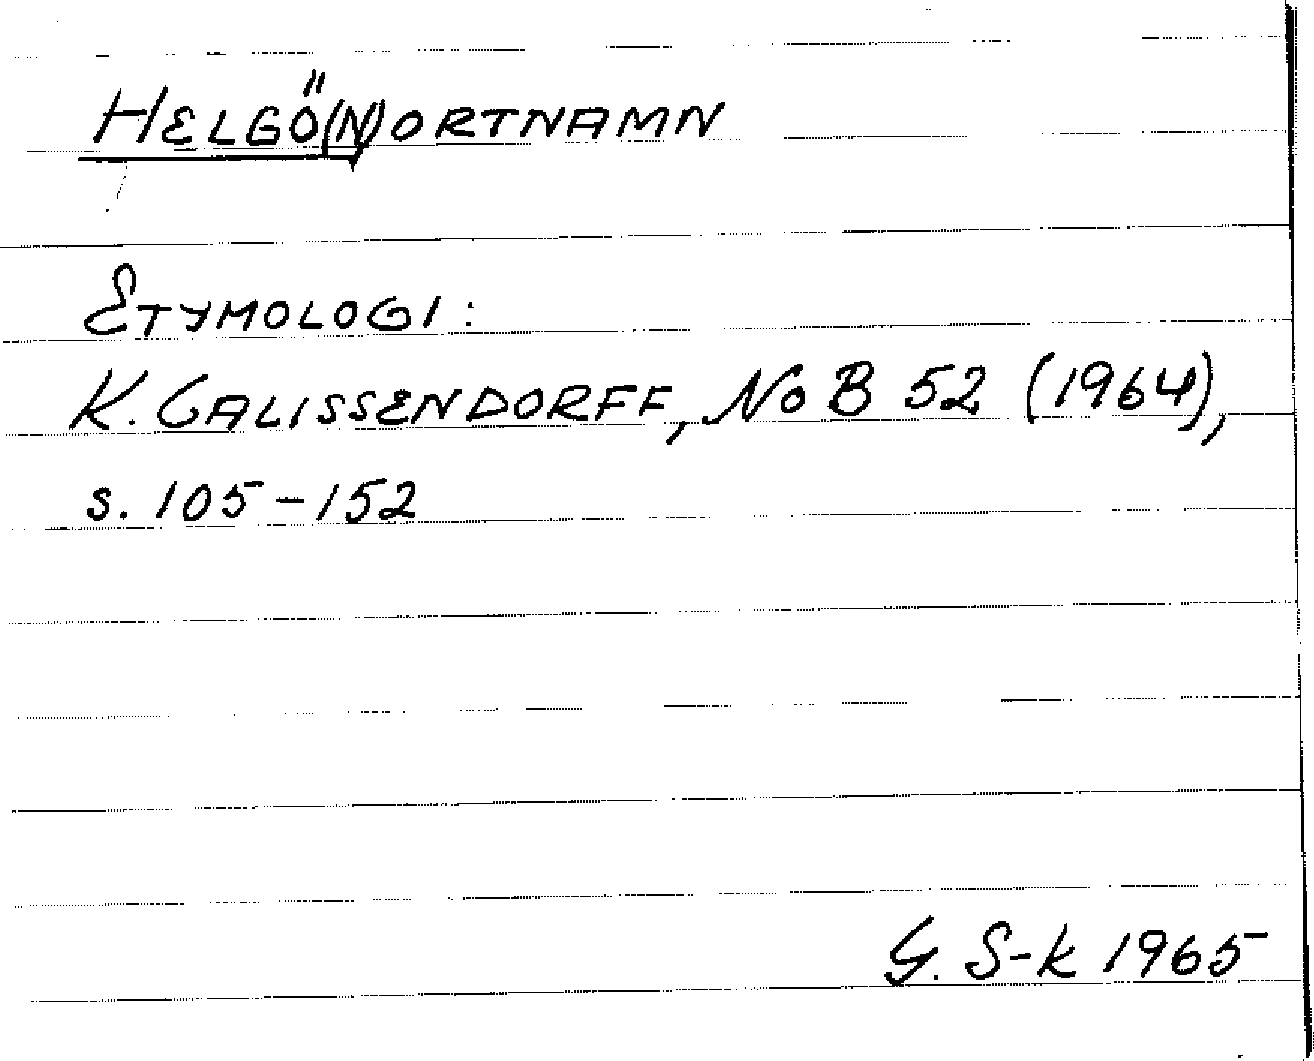 HELGÖ(N) ORTNAMN
ETYMOLOGI:
K. CALISSENDORFF, NoB 52 (1964),
s. 105-152
G. S-k 1965